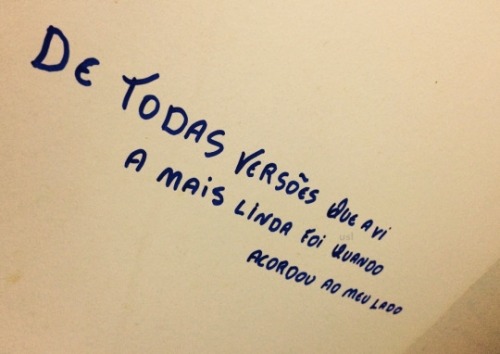 DE TODAS VERSÕES QUE A VI
A MAIS LINDA FOI QUANDO
ACORDOU AO MEU LADO